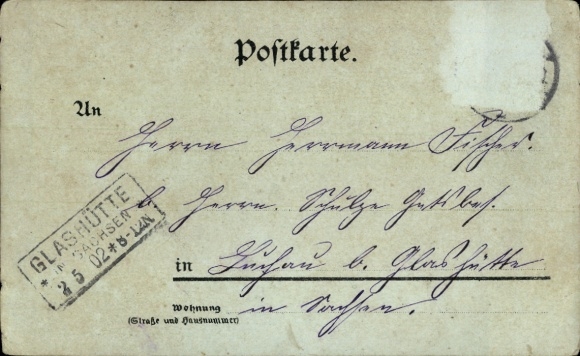 Postkarte.
An
Herrn Herrmann Fischer.
b. Herrn. Schulze Gutsbes.
GLASHÜTTE
* IN SACHSEN
2 5 02 * 8-12N.
in Luchau b. Glashütte
Wohnung
in Sachsen.
(Straße und Hausnummer)